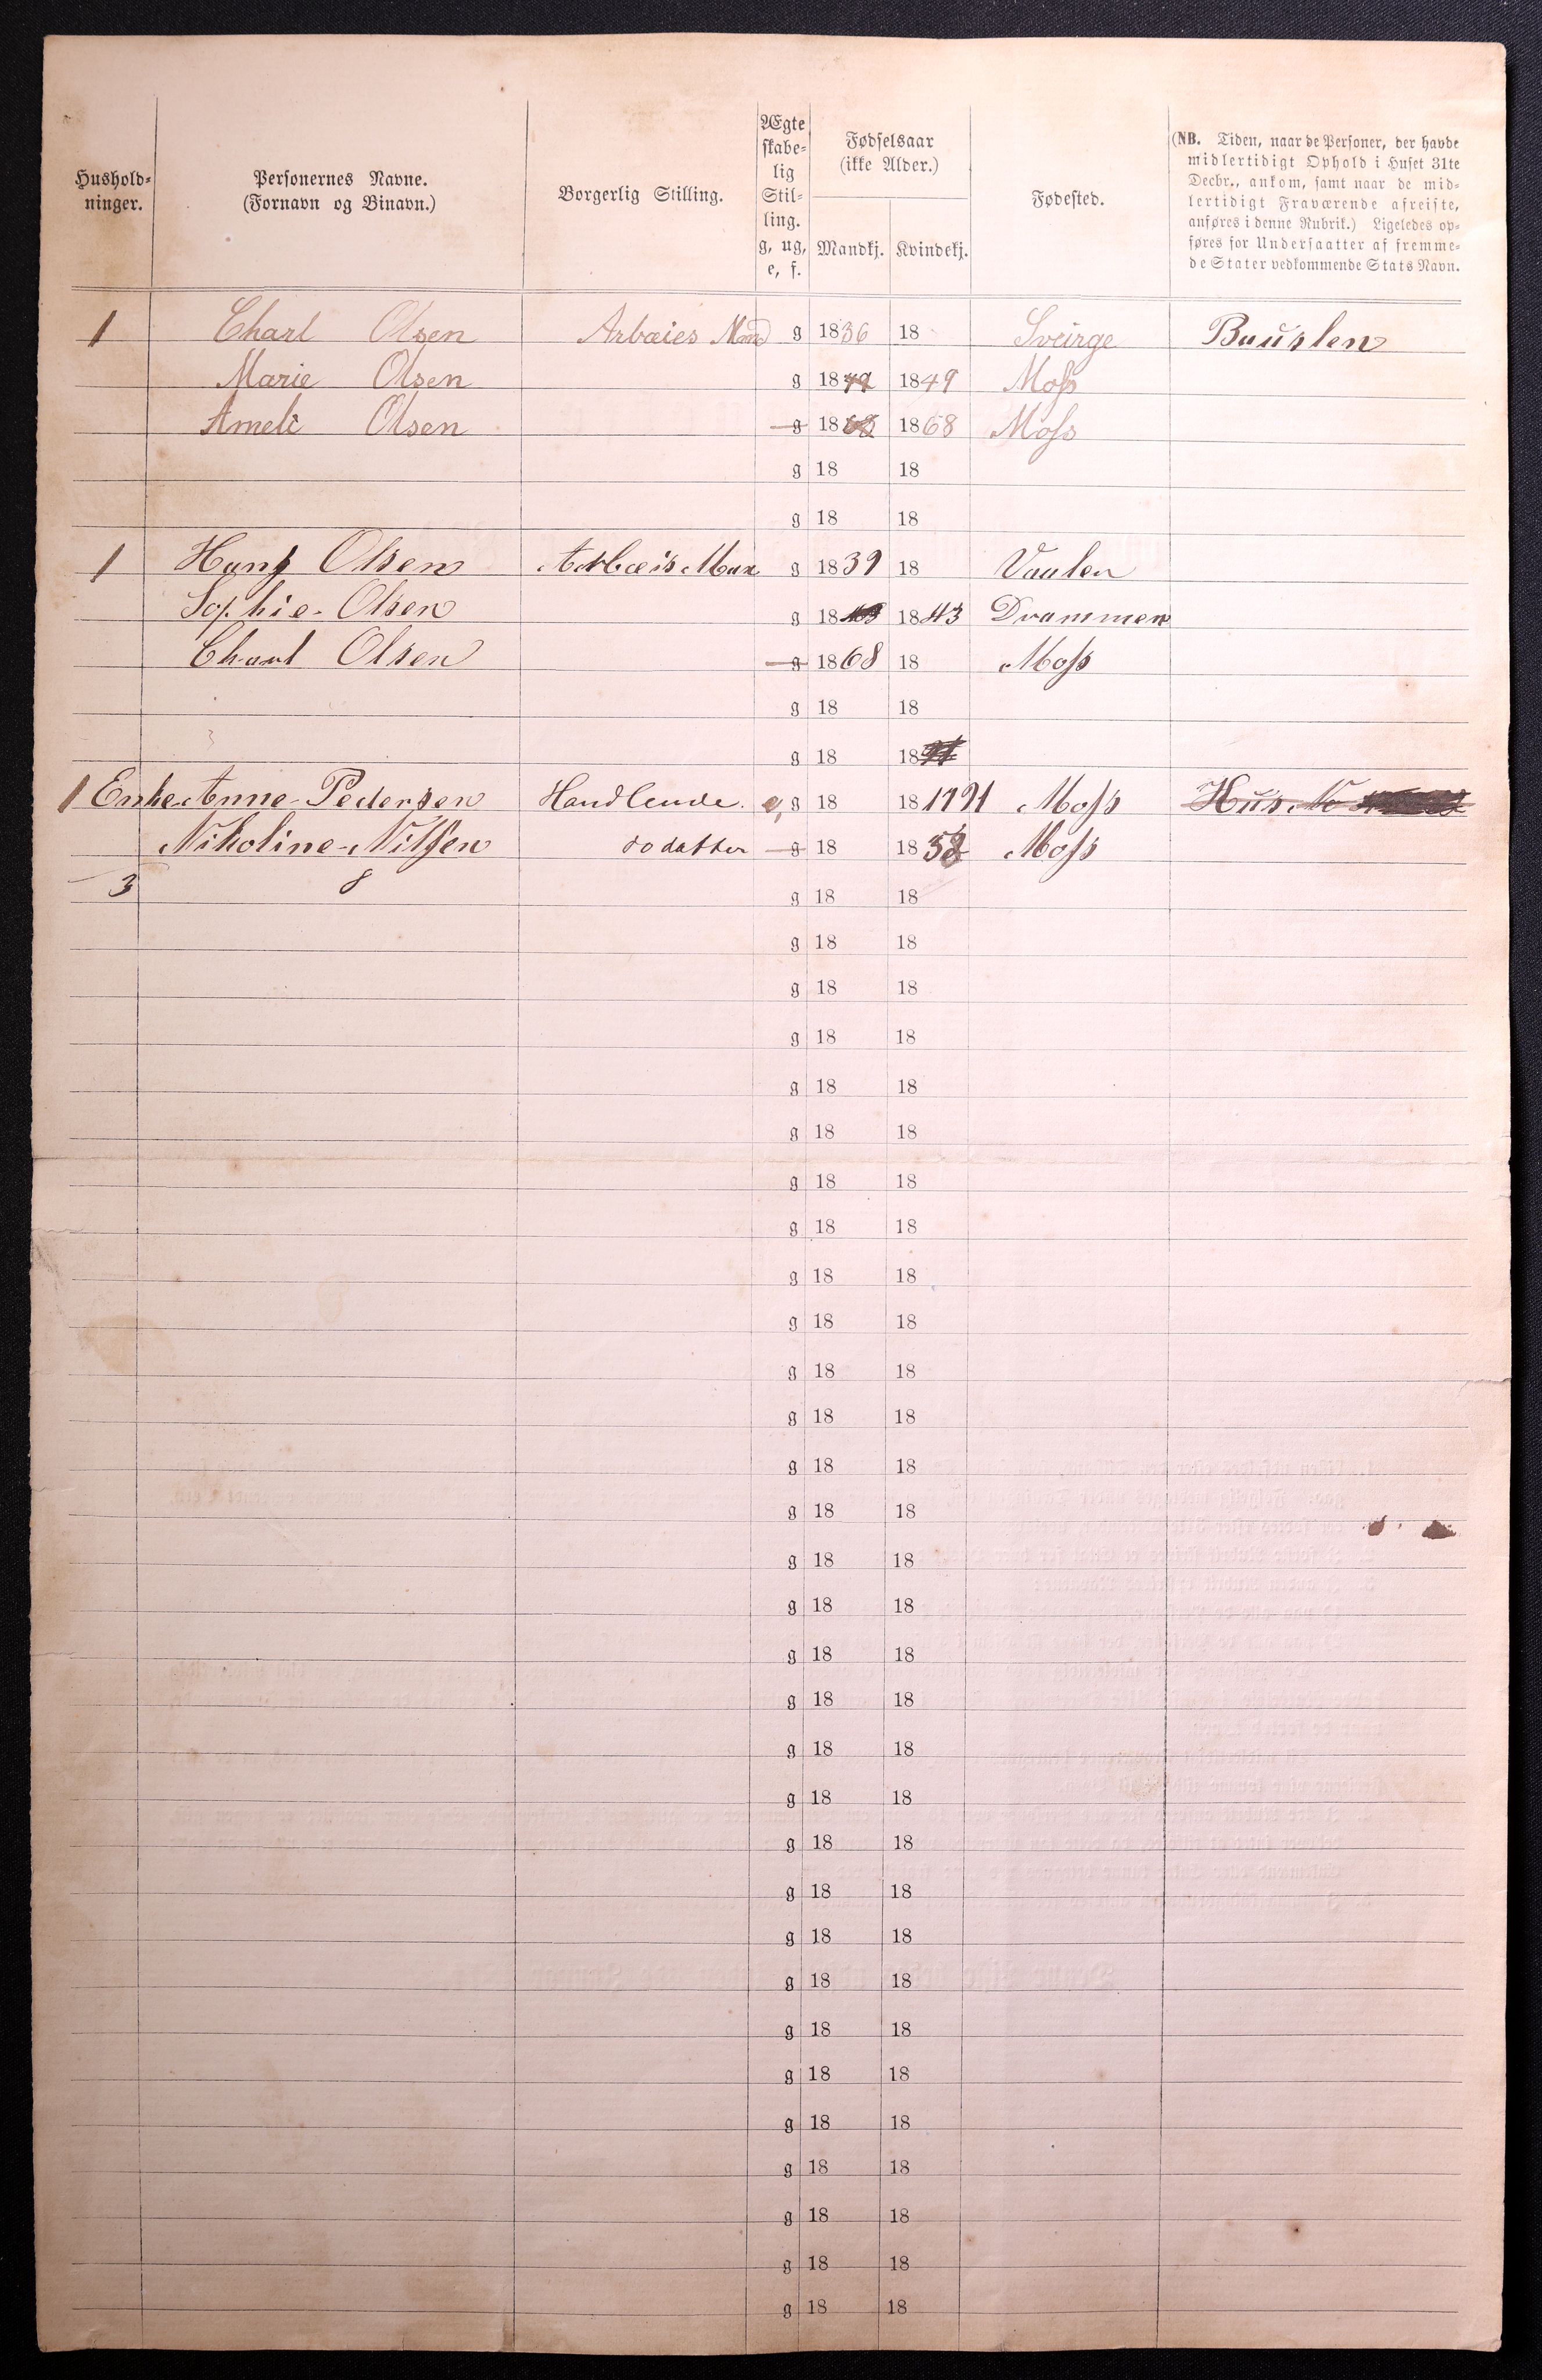 Hushold-
ninger.
Personernes Navne.
(Fornavn og Binavn.)
Borgerlig Stilling.
Ægte
skabe-
lig
Stil-
ling.
g, ug,
e, f.
Fødselsaar
(ikke Alder.)
Mandkj. Kvindekj.
Fødested.
(NB. Tiden, naar de Personer, der havde
midlertidigt Ophold i Huset 31te
Decbr., ankom, samt naar de mid-
lertidigt Fraværende afreiste,
anføres i denne Rubrik.) Ligeledes op-
føres for Undersaatter af fremme-
de Stater vedkommende Stats Navn.
1 Charl Olsen Arbæies Man g 1836 18 Sveirge Bauslen
Marie Olsen g 1849 1849 Moss
Ameli Olsen g 1868 1868 Moss
g 18 18
g 18 18
1 Hans Olsen Arbæis Man g 1839 18 Vaaler
Sophie Olsen g 1843 1843 Drammen
Charl Olsen g 1868 18 Moss
g 18 18
g 18 18
1 Enke Anne Pedersen Handlende. e, g 18 18 1791 Moss Hus No
Nikoline Nilsen dodatter g 18 1852 Moss
3 8 g 18 18
g 18 18
g 18 18
g 18 18
g 18 18
g 18 18
g 18 18
g 18 18
g 18 18
g 18 18
g 18 18
g 18 18
g 18 18
g 18 18
g 18 18
g 18 18
g 18 18
g 18 18
g 18 18
g 18 18
g 18 18
g 18 18
g 18 18
g 18 18
g 18 18
g 18 18
g 18 18
g 18 18
g 18 18
g 18 18
g 18 18